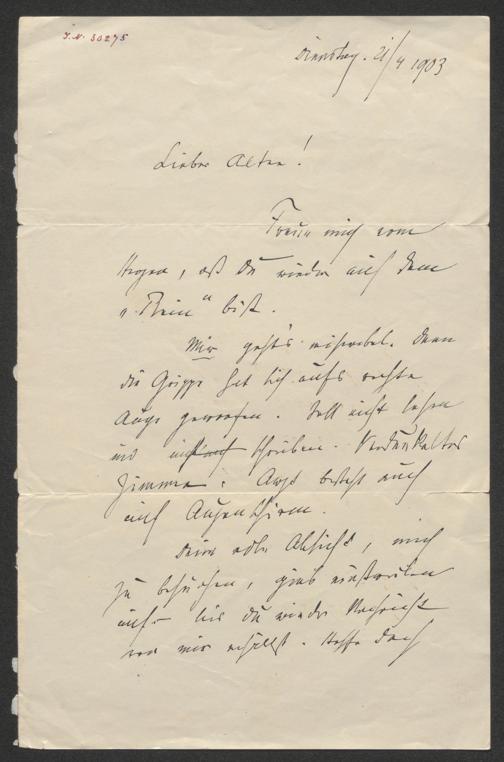 J.N. 30275
Dienstag. 21/4 1903
Lieber Alter!
Freue mich vom
Herzen, daß Du wieder auf dem
„Rein“ bist.
Mir geht's miserabel. Denn
die Grippe hat sich aufs rechte
Auge geworfen. Soll nicht lesen
und nicht schreiben. Verdunkeltes
Zimmer. Arzt besteht auch
auf Augenschirm.
Deine edle Absicht, mich
zu besuchen, gieb einstweilen
auf – bis Du wieder Nachricht
von mir erhältst. Hoffe doch